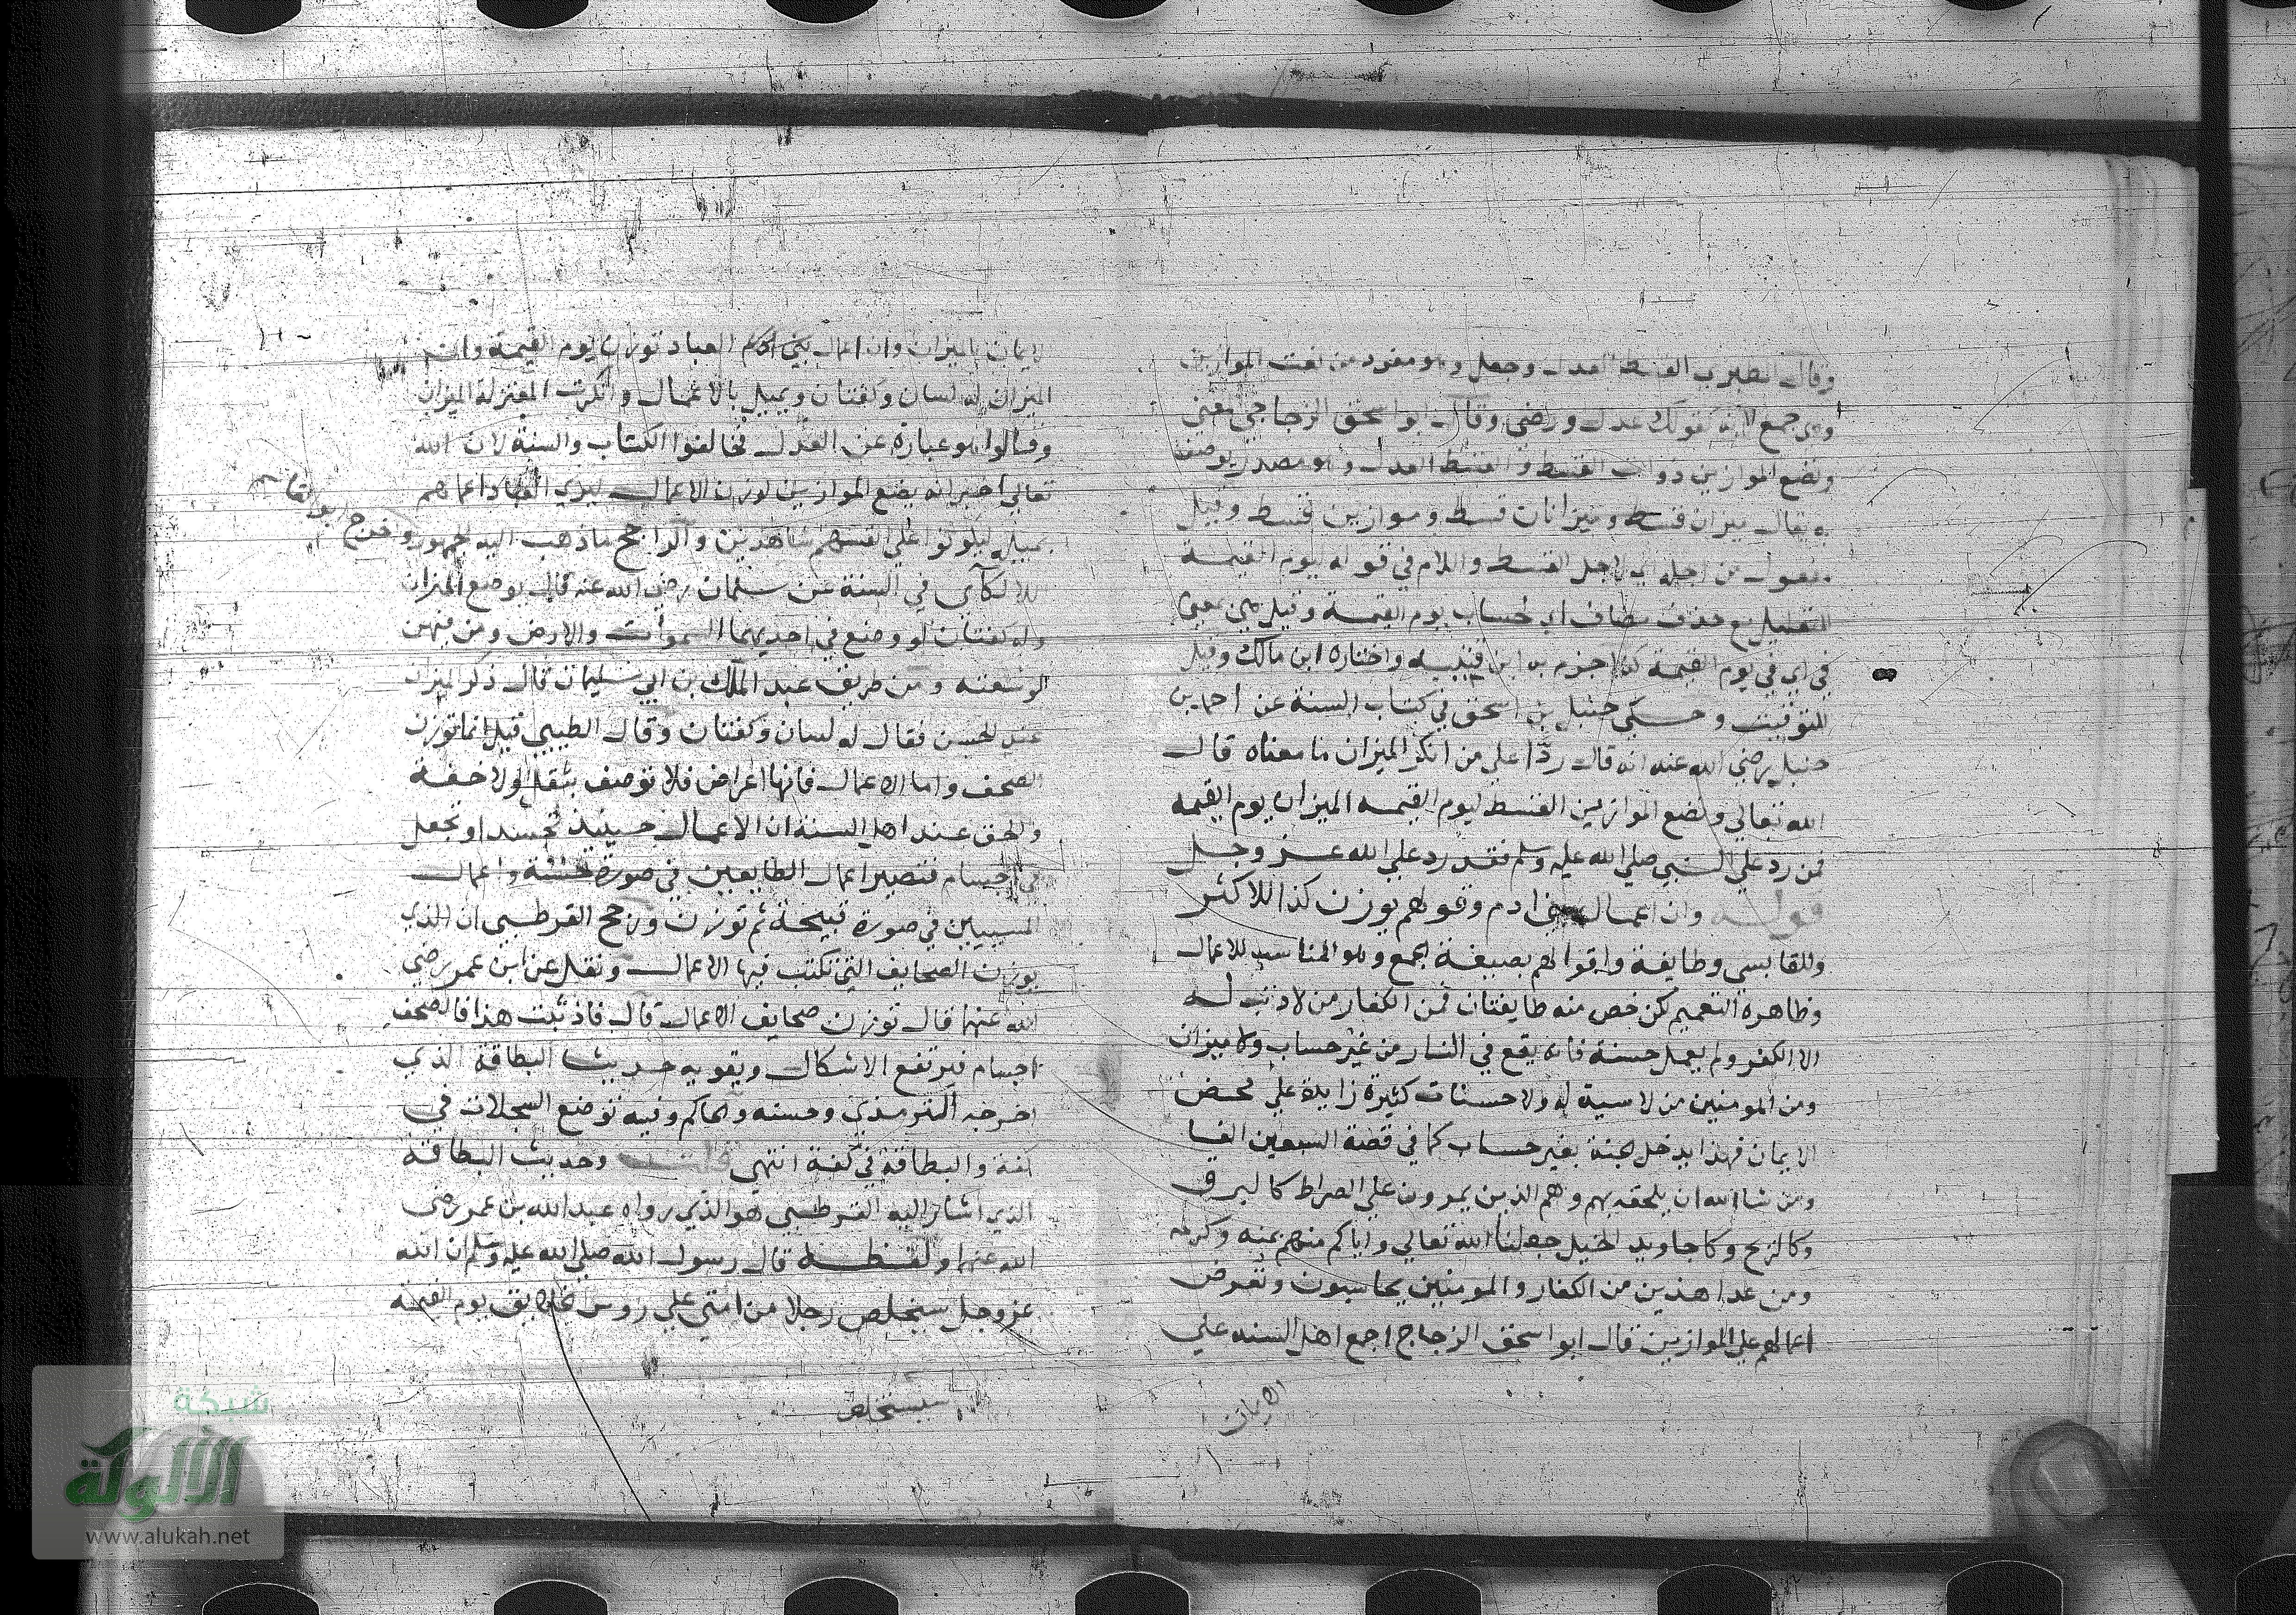 وقال القسط العدل وجعل وهو مفرد من نعت الموازين
وهي جمع لانه كقولك عدل ورضي وقال ابو اسحق الزجاجي معني
ونضع الموازين ذوات القسط والقسط العدل وهو مصدر يوصف
به يقال ميزان قسط وميزانان قسط وموازين قسط وقيل
مفعول من اجله اي لاجل القسط واللام في قوله ليوم القيمة
للتعليل مع حذف مضاف اي لحساب يوم القيمة وقيل هي بمعني
في اي في يوم القيمة كذا جزم به ابن قتيبه واختاره ابن مالك وقيل
للتوقيت وحكي حنبل بن اسحق في كتاب السنة عن احمد بن
حنبل رضي الله عنه انه قال ردّا علي من انكر الميزان ما معناه قال
الله تعالي ونضع الموازين القسط ليوم القيمه الميزان يوم القيمه
فمن رد علي النبي صلي الله عليه وسلم فقد رد علي الله عز وجل
قوله وان اعمال بني ادم وقولهم يوزن كذا للاكثر
وللقابسي وطايفة واقوالهم بصيغة الجمع وهو المناسب للاعمال
وظاهره التعميم لكن خص منه طايفتان فمن الكفار من لا ذنب له
الا الكفر ولم يعمل حسنة فانه يقع في النار من غير حساب ولا ميزان
ومن المومنين من لا سية له وله حسنات كثيرة زايدة علي محض
الايمان فهذا يدخل الجنة بغير حساب كما في قصة السبعين الفا
ومن شا الله ان يلحقه بهم وهم الذين يمرون علي الصراط كالبرق
وكالريح وكاجاويد الخيل جعلنا الله تعالي واياكم منهم بمنه وكرمه
ومن عدا هذين من الكفار والمومنين يحاسبون وتعرض
اعمالهم علي الموازين قال ابو اسحق الزجاج اجمع اهل السنه علي
الايمان
الايمان بالميزان وان اعمال العباد توزن يوم القيمة وان
الميزان له لسان وكفتان ويميل بالاعمال وانكرت المعتزلة الميزان
وقالوا هو عبارة عن العدل فخالفوا الكتاب والسنة لان الله
تعالي اخبر انه يضع الموازين لوزن الاعمال ليري العباد اعمالهم
ليكونوا علي انفسهم شاهدين والراجح ما ذهب اليه الجمهور واخرج
ابو القاسم
اللالكآي في السنة عن سلمان رضي الله عنه قال يوضع الميزان
وله كفتان لو وضع في احديهما السموات والارض ومن فيهن
لوسعته ومن طريق عبد الملك بن ابي سليمان قال ذكر الميزان
عند الحسن فقال له لسان وكفتان وقال الطيبي قيل انما توزن
الصحف واما الاعمال فانها اعراض فلا توصف بثقل ولا خفة
والحق عند اهل السنة ان الاعمال حينيذ تجسد او تجعل
في اجسام فتصير اعمال الطايعين في صورة حسنة واعمال
المسيين في صورة قبيحة ثم توزن ورجح القرطبي ان الذي
يوزن الصحايف التي تكتب فيها الاعمال ونقل عن ابن عمر رضي
الله عنهما قال توزن صحايف الاعمال قال فاذ ثبت هذا فالصحف
اجسام فيرتفع الاشكال ويقويه حديث البطاقة الذي
اخرجه الترمذي وحسنه والحاكم وفيه فتوضع السجلات في
كفة والبطاقة في كفة انتهي قلت وحديث البطاقة
الذي اشار اليه القرطبي هو الذي رواه عبد الله بن عمر رضي
الله عنهما ولفظه قال رسول الله صلي الله عليه وسلم ان الله
عز وجل سيخلص رجلا من امتي علي روس الخلايق يوم القيمة
سيستخلص
شبكة
الألوكة
www.alukah.net